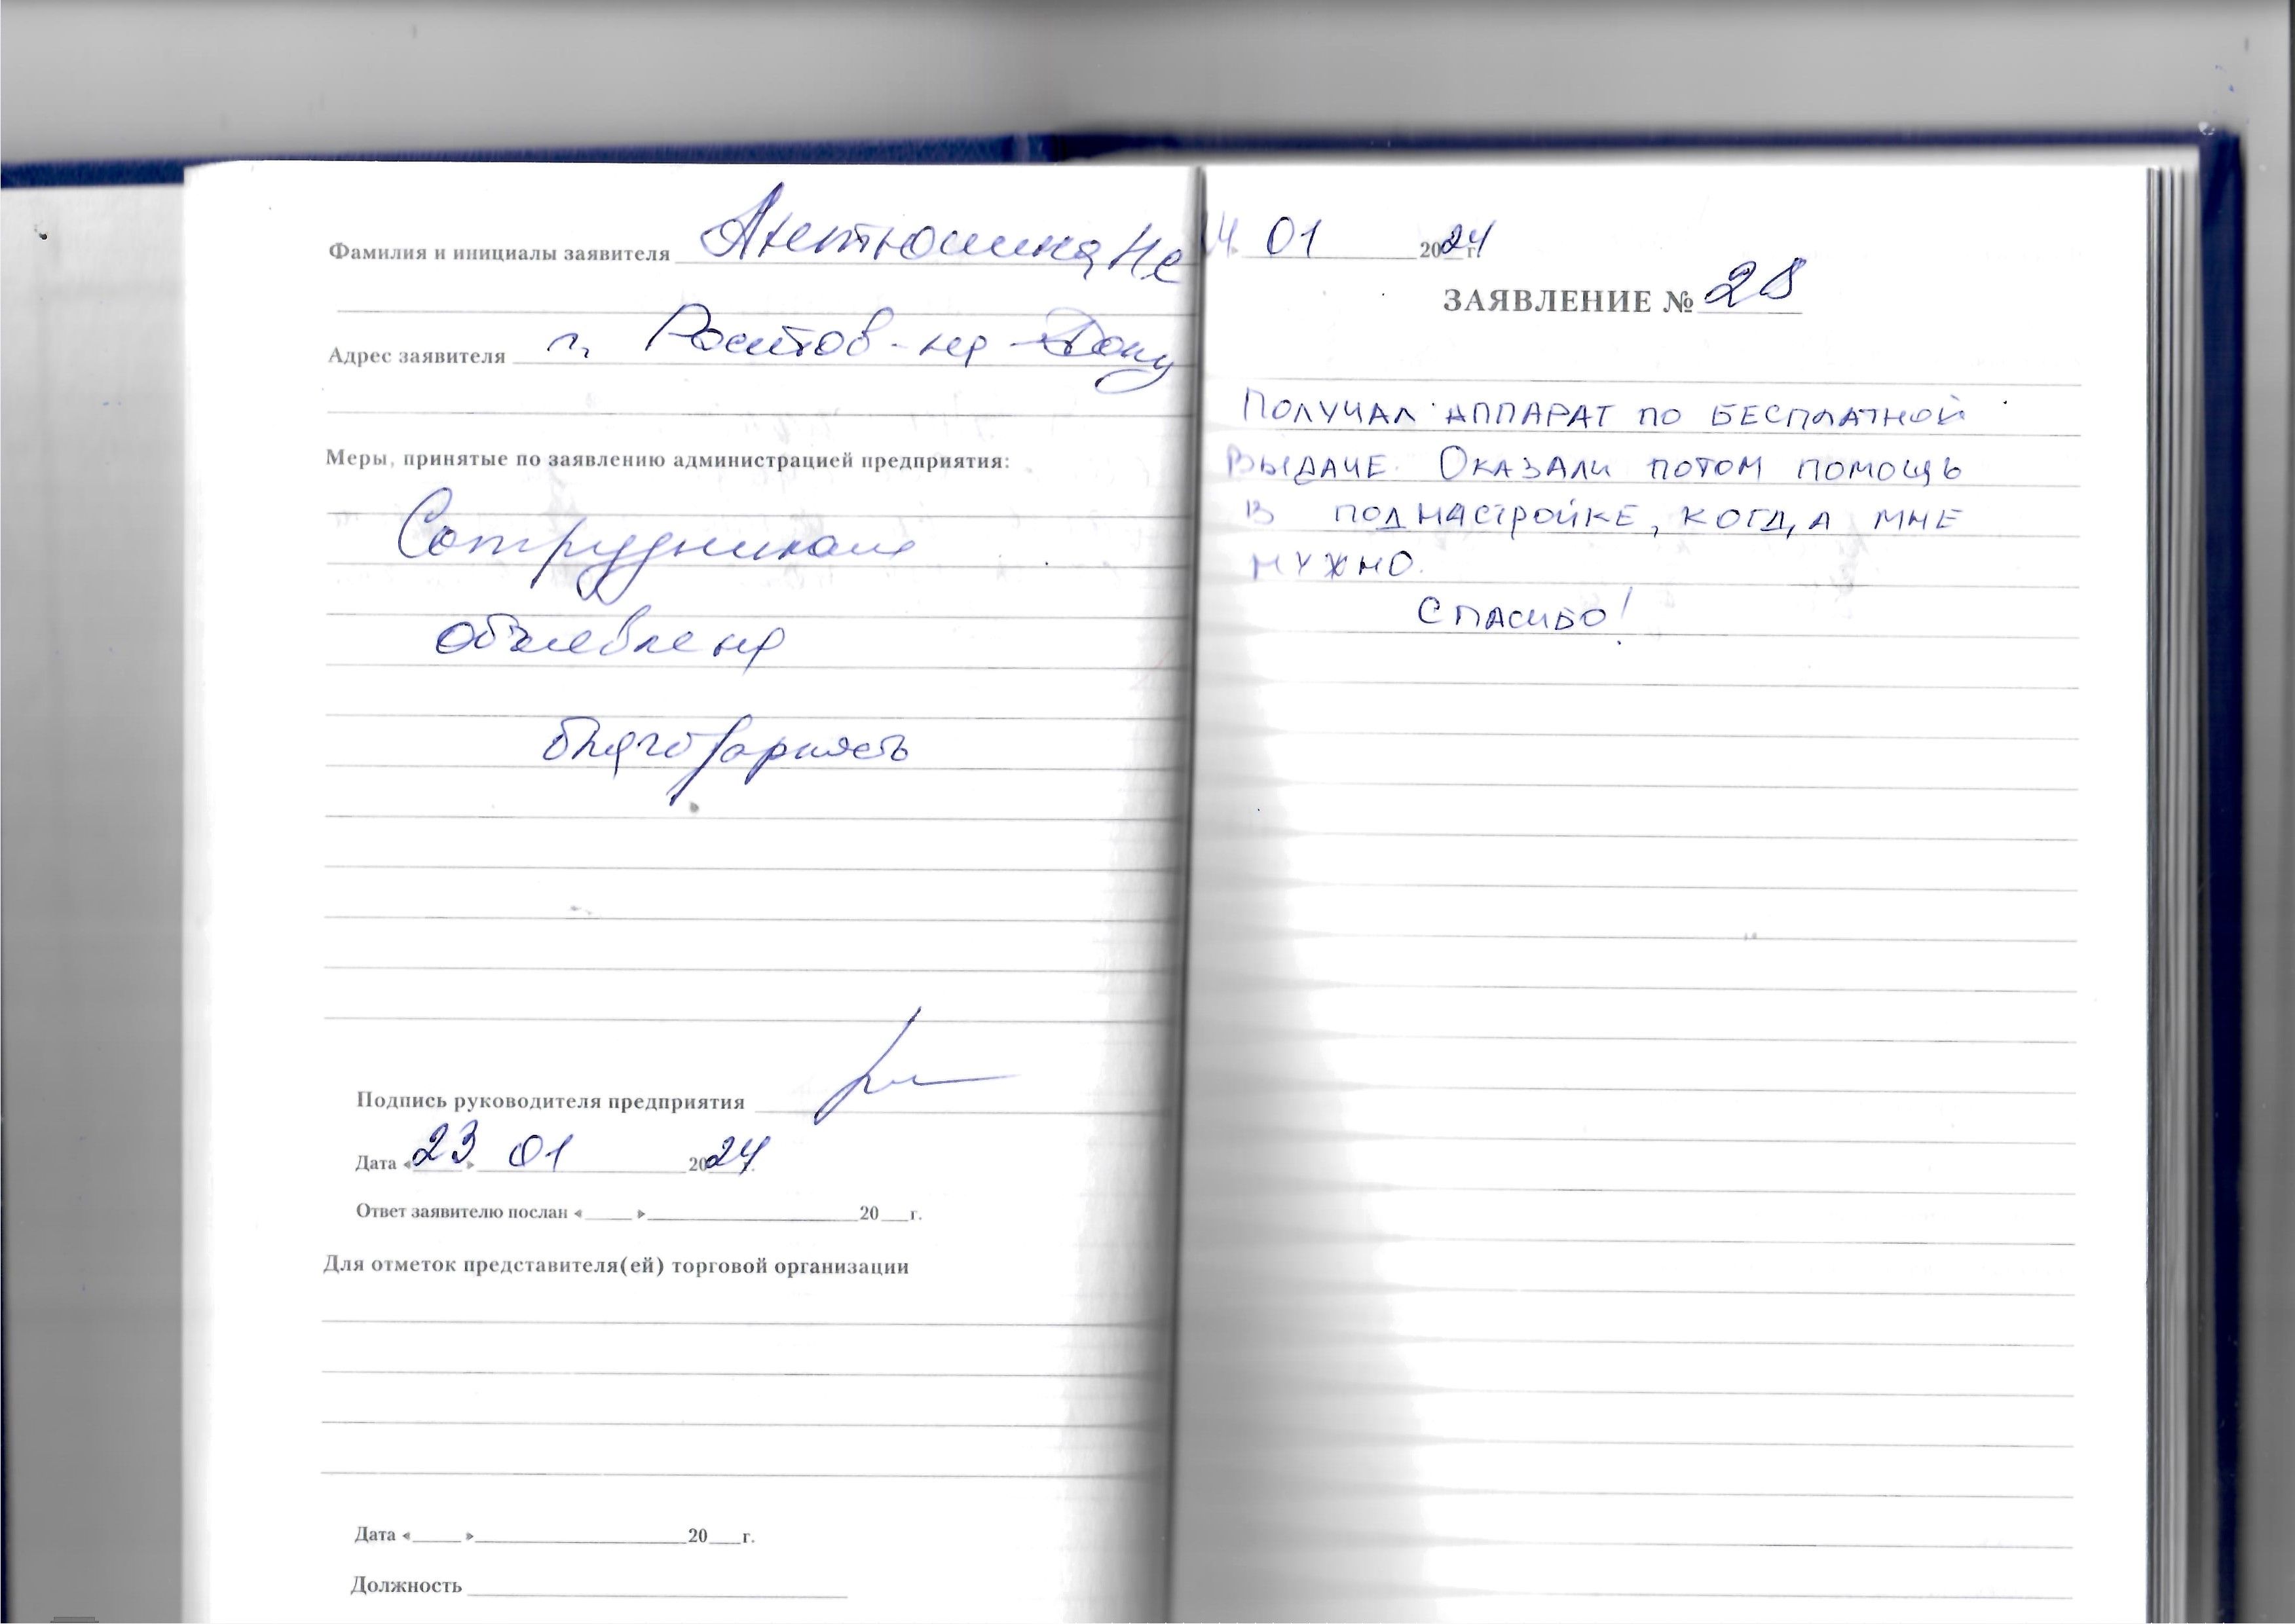 Фамилия и инициалы заявителя
Адрес заявителя г. Ростов-на-Дону
Меры, принятые по заявлению администрацией предприятия:
Сотрудникам
объявлена
благодарность
Подпись руководителя предприятия
Дата «23» 01 2024
Ответ заявителю послан «____» ____ 20__г.
Для отметок представителя(ей) торговой организации
Дата «____» ____ 20__г.
Должность
01 2024 г.
ЗАЯВЛЕНИЕ № 28
ПОЛУЧАЛ АППАРАТ ПО БЕСПЛАТНОЙ
ВЫДАЧЕ. ОКАЗАЛИ ПОТОМ ПОМОЩЬ
В ПОДНАСТРОЙКЕ, КОГДА МНЕ
НУЖНО.
СПАСИБО!